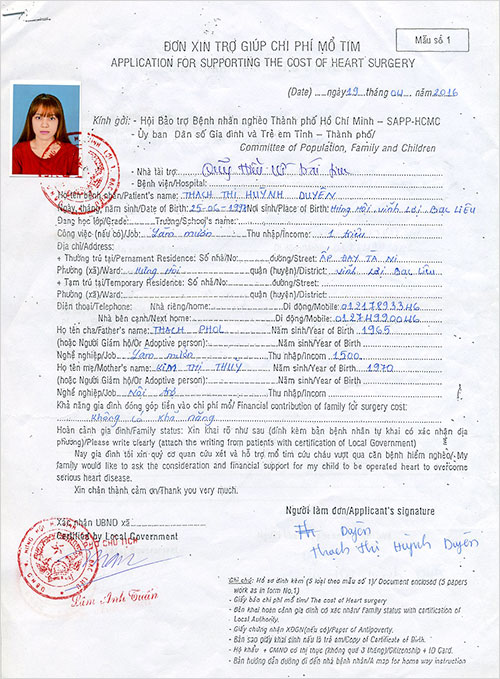 Mẫu số 1
ĐƠN XIN TRỢ GIÚP CHI PHÍ MỔ TIM
APPLICATION FOR SUPPORTING THE COST OF HEART SURGERY
(Date) ......ngày 19 ...tháng 04 ....năm 2016
Kính gởi: - Hội Bảo trợ Bệnh nhân nghèo Thành phố Hồ Chí Minh – SAPP-HCMC
- Ủy ban Dân số Gia đình và Trẻ em Tỉnh – Thành phố/
Committee of Population, Family and Children
- Nhà tài trợ: Quỹ
- Bệnh viện/Hospital:
Họ tên bệnh nhân/Patient's name: THẠCH THỊ HUỲNH DUYÊN
Ngày, tháng, năm sinh/Date of Birth: 25-06-199 Nơi sinh/Place of Birth: Hưng Hội Vĩnh Lợi Bạc Liêu
Đang học lớp/Grade: Trường/School's name:
Công việc (nếu có)/Job: Làm mướn Thu nhập/Income: 1 triệu
Địa chỉ/Address:
+ Thường trú tại/Permanent Residence: Số nhà/No: đường/Street: ẤP ĐAY TÀ NI
Phường (xã)/Ward: Hưng Hội quận (huyện)/District: Vĩnh Lợi Bạc Liêu
+ Tạm trú tại/Temporary Residence: Số nhà/No: đường/Street:
Phường (xã)/Ward: quận (huyện)/District:
Điện thoại/Telephone: Nhà riêng/home: Di động/Mobile: 01217893346
Nhà bên cạnh/Next home: Di động/Mobile: 01274990046
Họ tên cha/Father's name: THẠCH PHOL Năm sinh/Year of Birth 1965
(hoặc Người Giám hộ/Or Adoptive person): Năm sinh/Year of Birth
Nghề nghiệp/Job Làm mướn Thu nhập/Income 1500
Họ tên mẹ/Mother's name: KIM THỊ THUỶ Năm sinh/Year of Birth 1970
(hoặc Người Giám hộ/Or Adoptive person): Năm sinh/Year of Birth
Nghề nghiệp/Job Nội trợ Thu nhập/Income
Khả năng gia đình đóng góp tiền vào chi phí mổ/ Financial contribution of family for surgery cost:
Không có khả năng
Hoàn cảnh gia đình/Family status: Xin khai rõ như sau (đính kèm bản bệnh nhân tự khai có xác nhận địa
phương)/Please write clearly (attach the writing from patients with certification of Local Government)
Nay gia đình tôi xin quý cơ quan cứu xét và hỗ trợ mổ tim cứu cháu vượt qua căn bệnh hiểm nghèo/-My
family would like to ask the consideration and financial support for my child to be operated heart to overcome
serious heart disease.
Xin chân thành cảm ơn/Thank you very much.
Người làm đơn/Applicant's signature
Xác nhận UBND xã
Certified by Local Government
PHÓ CHỦ TỊCH
Duyên
Thạch Thị Huỳnh Duyên
Lâm Anh Tuấn
Ghi chú: Hồ sơ đính kèm (5 loại theo mẫu số 1)/ Document enclosed (5 papers
work as in form No.1)
- Giấy báo chi phí mổ tim/ The cost of Heart surgery
- Bản khai hoàn cảnh gia đình có xác nhận/ Family status with certification of
Local Authority.
- Giấy chứng nhận XĐGN(nếu có)/Paper of Antipoverty.
- Bản sao giấy khai sinh nếu là trẻ em/Copy of Certificate of Birth.
- Hộ khẩu + CMND có thị thực (không quá 3 tháng)/Citizenship + ID Card.
- Bản hướng dẫn đường đi đến nhà bệnh nhân/A map for home way instruction